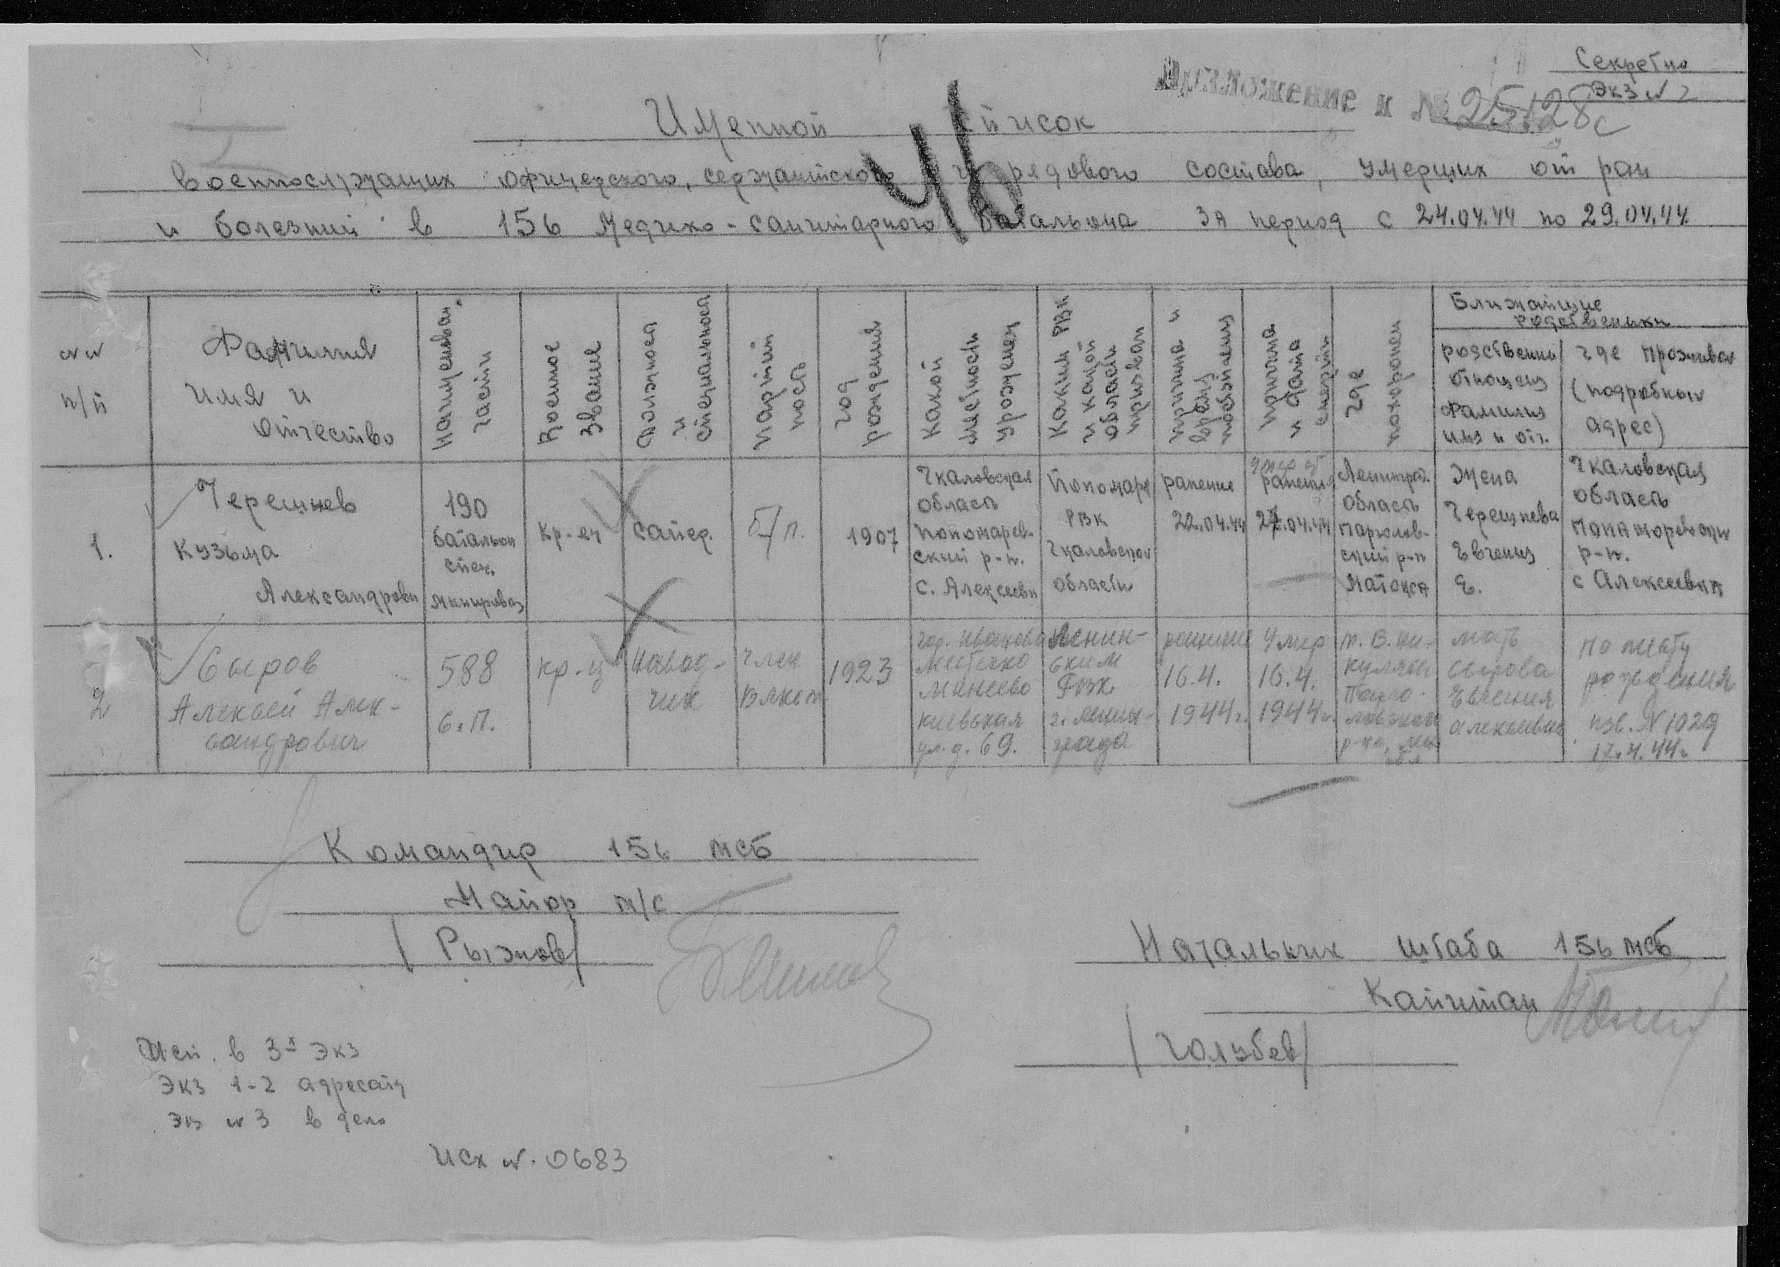 Секретно
Экз №2
Приложение к № 25128с
Именной список
46
военнослужащих офицерского, сержантского и рядового состава, умерших от ран
и болезний в 156 Медико-санитарного Батальона за период с 24.04.44 по 29.04.44
№№ п/п
Фамилия имя и отчество
Наименован. части
Военное звание
Должность и специальность
Партийность
Год рождения
Какой местности уроженец
Каким РВК и какой области призван
Причина и время
Причина и дата смерти
Где похоронен
Ближайшие родственники
родственны отношения фамилия имя и отч.
где проживает (подробный адрес)
1.
Черешнев
Кузьма
Александрови
190
батальон
спец.
минирован
кр-ец
сапер.
б/п.
1907
Чкаловская
область
Пономарев-
ский р-н.
с. Алексеевк
Пономарев
РВК
Чкаловской
области
ранение
22.04.44
ранения
27.04.44
Ленинград.
область
Парголов-
ский р-н
Матокса
Жена
Черешнева
Евгения
Е.
Чкаловская
область
Понаморевский
р-н.
с Алексеевка
2
Сыров
Алексей Алек-
сандрович
588
с.п.
кр-ц
навод-
чик
член
ВЛКСМ
1923
гор. Иваново
местечко
Минеево
Киевская
ул. д. 69.
Ленин-
ским
РВК
г. Ленин-
града
ранение
16.4.
1944г.
умер
16.4.
1944г.
Парго-
ловского
мать
Сырова
Евгения
Алексеевна
по месту
рождения
изв. №1029
17.4.44г.
Командир 156 МСБ
Майор м/с
/Рыжков/
Начальник штаба 156 МСБ
Капитан
/Голубев/
Исп. в 3-х экз
Экз 1-2 адресату
Экз №3 в дело
Исх №. 0683